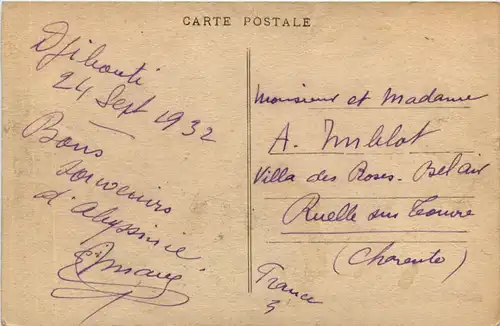 CARTE POSTALE
Djibouti
24 Sept 1932
Bons
souvenirs
d'Abyssinie
Monsieur et Madame
A.
Villa des Roses - Bel air
Ruelle sur Touvre
(Charente)
France